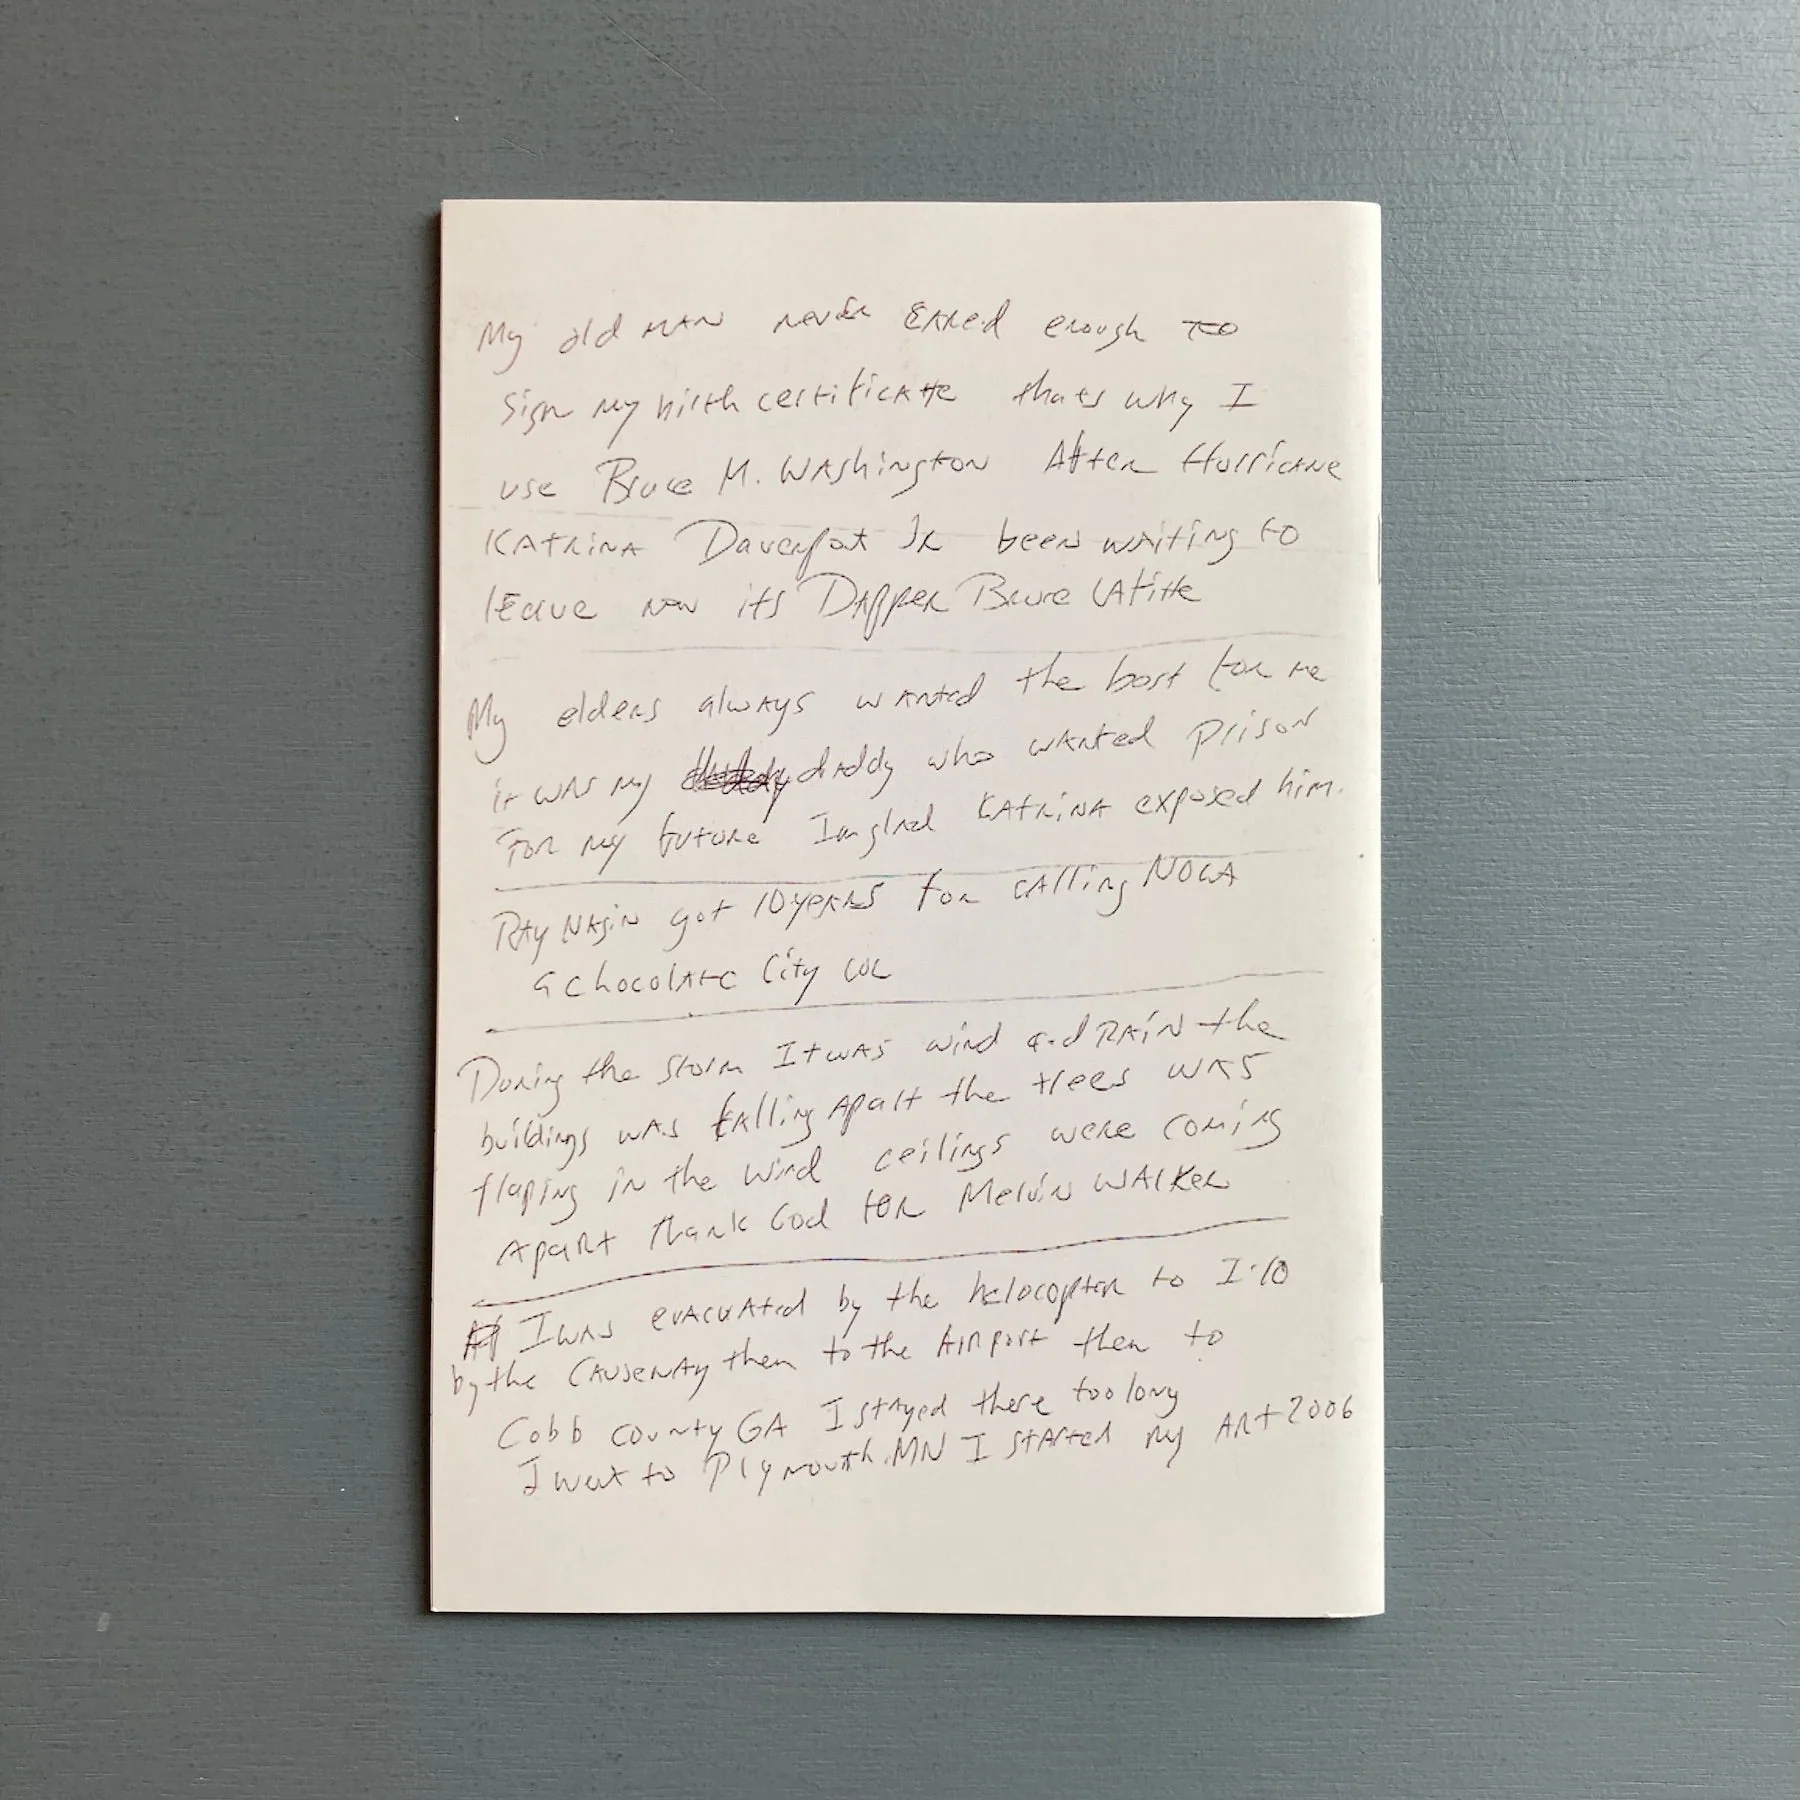 My old MAN never CAREd enough to
Sign my birth certificATTe thats why I
use Bruce M. WAShington After HurricANe
KATRiNA Davenpot JR been waiting to
leave now its DAppeR Bruce LAfitte
My elders always wanted the best for me
it was my daddy who wanted prison
For my future Im glad KATRINA exposed him.
RAy NAgiN got 10 yeARS for cAlling NOLA
a chocolate City LOL
During the storm It was wind and RAiN the
buildings was fAlling Apart the trees was
flaping in the wind ceilings were coming
Apart thank God for Melvin WAlker
I was evacuated by the helocopter to I-10
by the CAuseway then to the AiRport then to
Cobb county GA I stayed there too long
I went to Plymouth.MN I started my ARt 2006